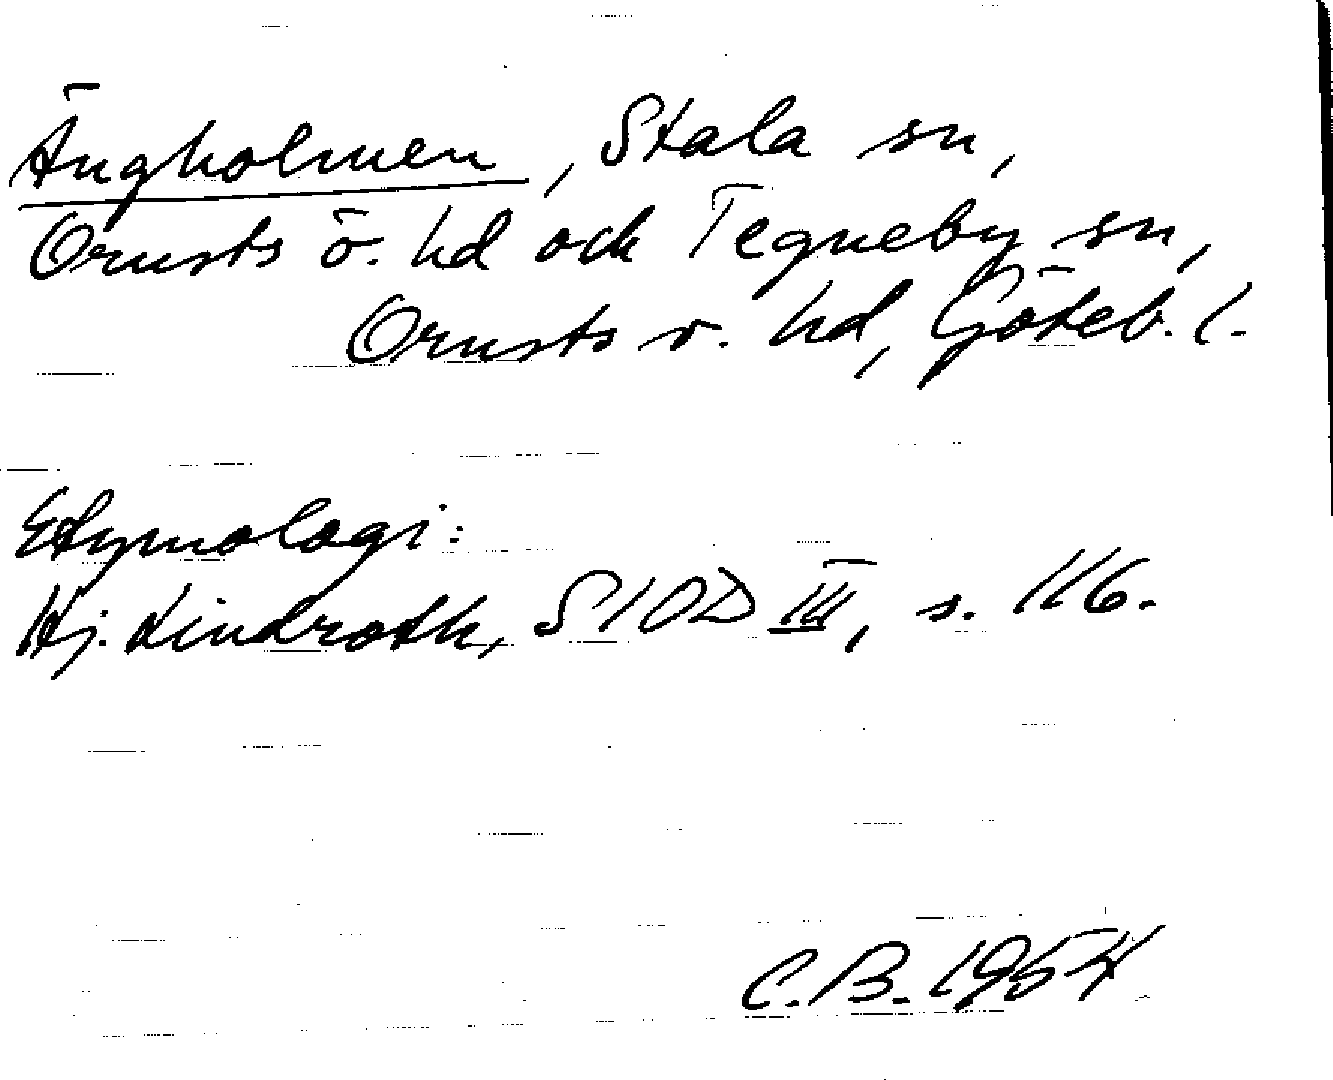 Ängholmen, Stala sn,
Orusts ö. hd och Tegneby sn,
Orusts v. hd, Göteb. l.
Etymologi:
Hj. Lindroth, SIOD III, s. 116.
C.B. 1954